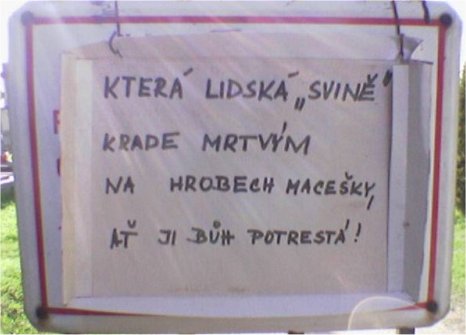 KTERÁ LIDSKÁ „SVINĚ"
KRADE MRTVÝM
NA HROBECH MACEŠKY,
AŤ JI BŮH POTRESTÁ!